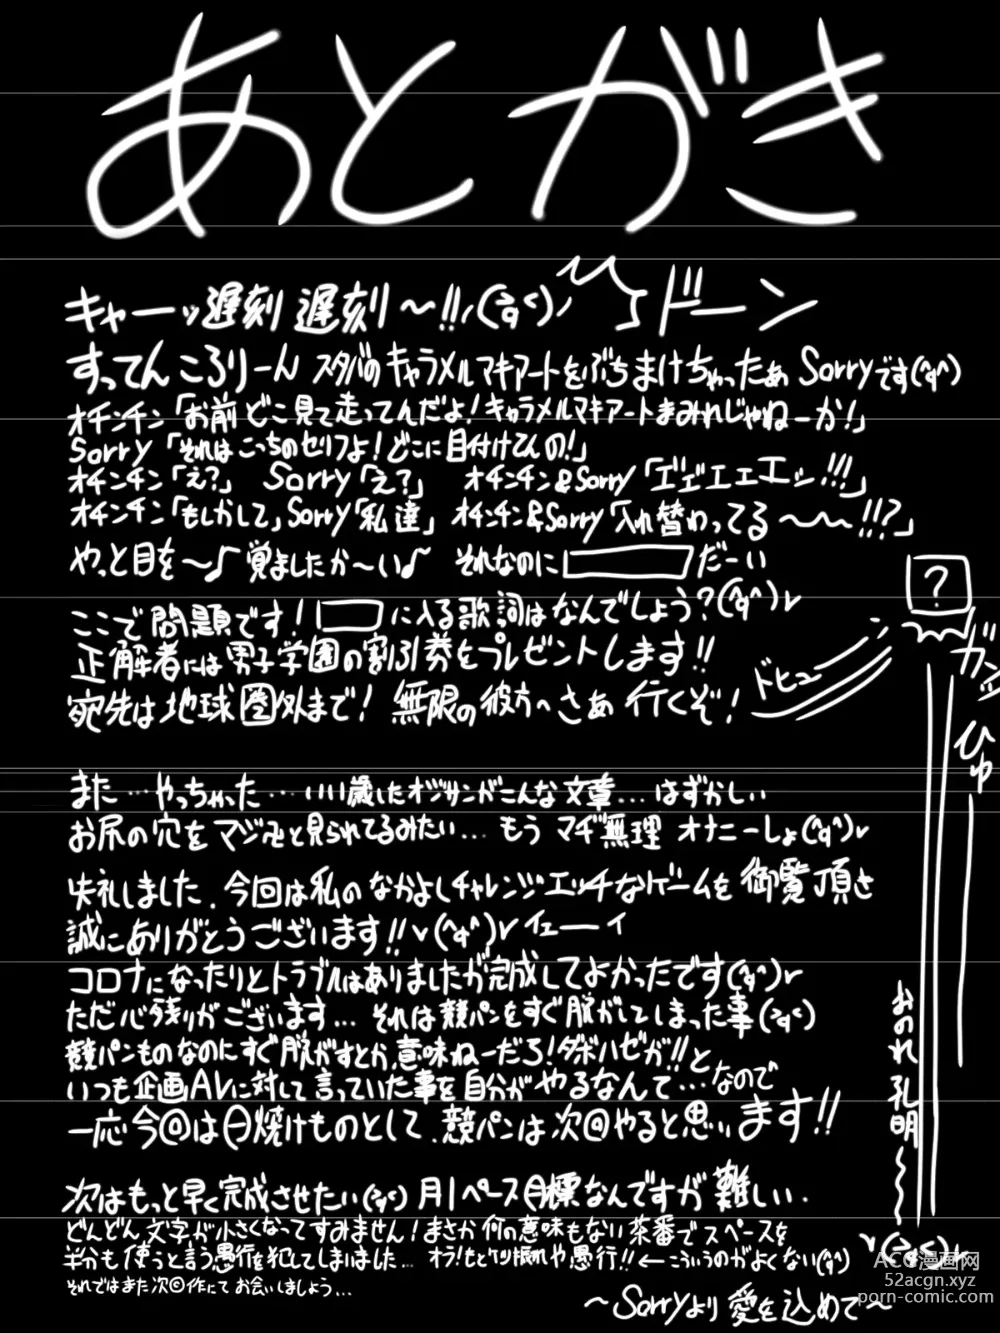 あとがき
キャーッ遅刻 遅刻 〜!!
ドーン
すってんころりーん スタバのキャラメルマキアートをぶちまけちゃったぁ Sorryです(^q^)
オチンチン「お前どこ見て走ってんだよ!キャラメルマキアートまみれじゃねーか!」
Sorry「それはこっちのセリフよ!どこに目付けてんの!」
オチンチン「え?」 Sorry「え?」 オチンチン&Sorry「エェェェェエッ!!!」
オチンチン「もしかして」Sorry「私達」 オチンチン&Sorry「入れ替わってる〜〜!!?」
やっと目を〜♪ 覚ましたか〜い♪ それなのに だーい
ここで問題です! に入る歌詞はなんでしょう?(^q^)v
正解者には男子学園の割引券をプレゼントします!!
宛先は地球圏外まで! 無限の彼方へさあ行くぞ!
ドヒュー
?
ガンッ
ひゅ
また…やっちゃった…いい歳したオジサンがこんな文章…はずかしい
お尻の穴をマジマジと見られてるみたい…もう マヂ無理 オナニーしょ(^q^)v
失礼しました。今回は私のなかよしチャレンジエッチなゲームを御覧頂き
誠にありがとうございます!!v(^q^)vイェーイ
コロナになったりとトラブルはありましたが完成してよかったです(^q^)v
ただ心残りがございます…それは競パンをすぐ脱がしてしまった事(>q<)
競パンものなのにすぐ脱がすとか、意味ねーだろ!ダボハゼが!!と
いつも企画AVに対して言っていた事を自分がやるなんて…なので
一応今回は日焼けものとして、競パンは次回やると思います!!
次はもっと早く完成させたい(>q<)月1ペース目標なんですが難しい。
どんどん文字が小さくなってすみません!まさか何の意味もない茶番でスペースを
半分も使うと言う愚行を犯してしまいました… オラ!もとケツ振れや愚行!!←こういうのがよくない(^q^)
それではまた次回作にてお会いしましょう…
おのれ孔明〜〜
v(>q<)v
〜Sorryより愛を込めて〜
ACG漫画网
52acgn.xyz
porn-comic.com